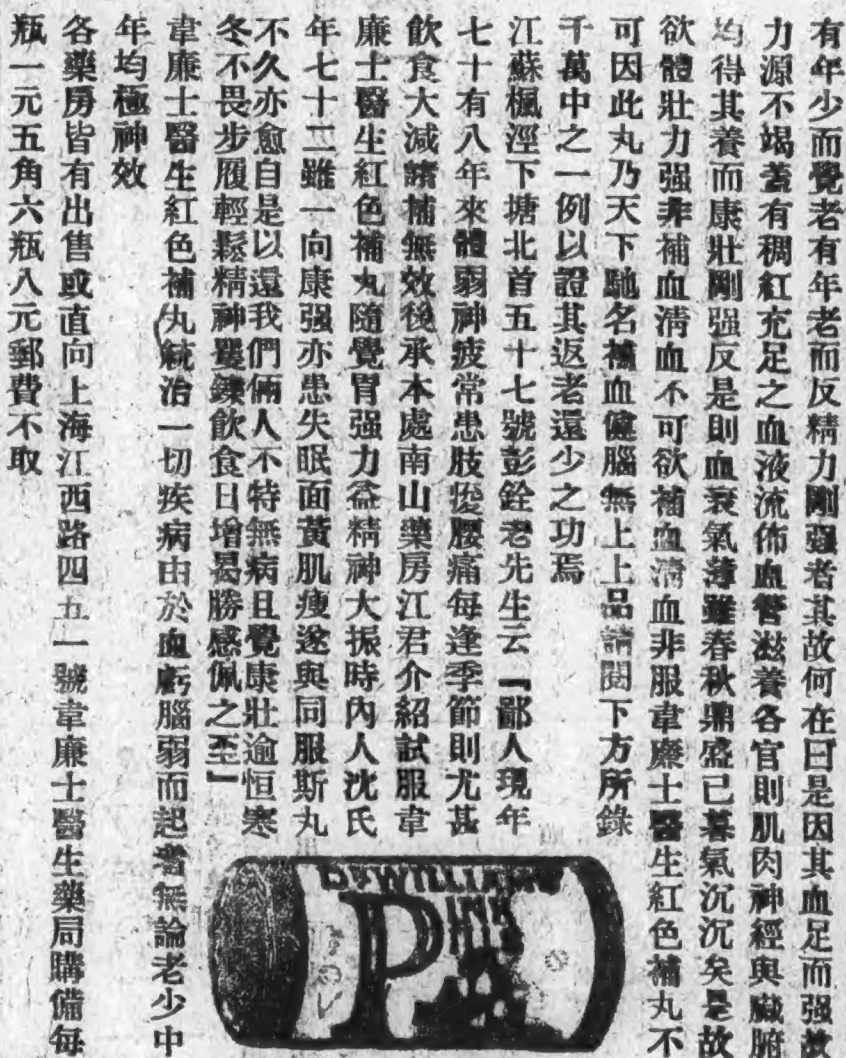 有年少而覺老有年老而反精力剛强者其故何在曰是因其血足而强故
力源不竭蓋有稠紅充足之血液流佈血管滋養各官則肌肉神經與臟腑
均得其養而康壯剛强反是則血衰氣薄雖春秋鼎盛已暮氣沉沉矣是故
欲體壯力强非補血淸血不可欲補血淸血非服韋廉士醫生紅色補丸不
可因此丸乃天下馳名補血健腦無上上品請閱下方所錄
千萬中之一例以證其返老還少之功焉
江蘇楓涇下塘北首五十七號彭銓老先生云『鄙人現年
七十有八年來體弱神疲常患肢痠腰痛每逢季節則尤甚
飲食大減諸補無效後承本處南山藥房江君介紹試服韋
廉士醫生紅色補丸隨覺胃强力益精神大振時內人沈氏
年七十二雖一向康强亦患失眠面黃肌瘦遂與同服斯丸
不久亦愈自是以還我們倆人不特無病且覺康壯逾恒寒
冬不畏步履輕鬆精神矍鑠飲食日增曷勝感佩之至』
韋廉士醫生紅色補丸統治一切疾病由於血虧腦弱而起者無論老少中
年均極神效
各藥房皆有出售或直向上海江西路四五一號韋廉士醫生藥局購備每
瓶一元五角六瓶八元郵費不取
DR WILLIAMS
PINK
PILLS